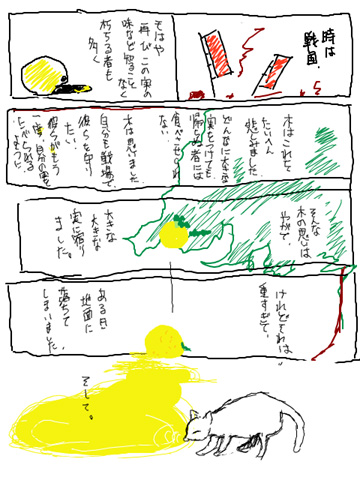 時は
戦国。
もはや
再びこの実の
味など知ることなく
朽ちる者も
多く
木はこれを
たいへん
悲しみました
どんなに大きな
実をつけても
帰らぬ者には
食べさせられ
ない
木は思いました
自分も戦場で
彼らを守り
たい
彼らがもう
一度自分の実を
たべられる
ように
そんな
木の思いは
やがて、
大きな
大きな
実に宿り
ました。
けれどそれは
重すぎて、
あるとき
地面に
落ちて
しまいました。
そして。